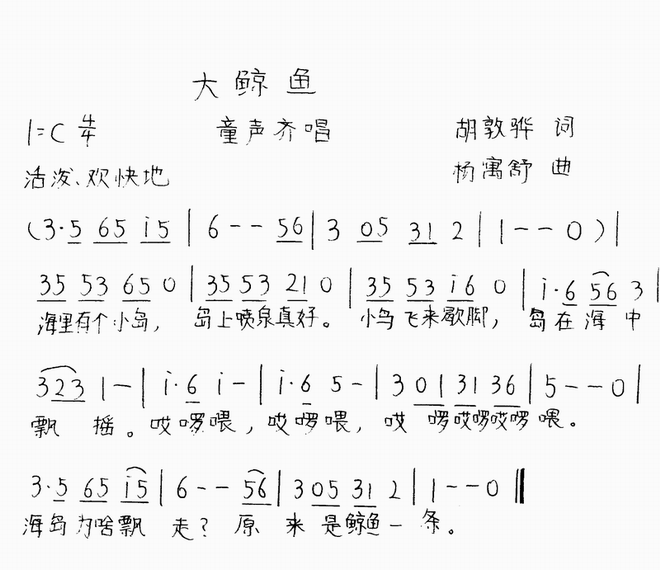 大鲸鱼
1=C 4/4 童声齐唱 胡敦骅 词
活泼、欢快地 杨寓舒 曲
(3·5 65 i5 | 6 - - 56 | 3 05 31 2 | 1 - - 0 ) |
35 53 65 0 | 35 53 21 0 | 35 53 i6 0 | i·6 56 3 |
海里有个小岛， 岛上喷泉真好。 小鸟飞来歇脚， 岛在海中
323 1 - | i·6 i - | i·6 5 - | 3 01 31 36 | 5 - - 0 |
飘 摇。哎啰喂，哎啰喂，哎 啰哎啰哎啰喂。
3·5 65 i5 | 6 - - 56 | 3 05 31 2 | 1 - - 0 ‖
海岛为啥飘 走？原 来 是鲸鱼一 条。